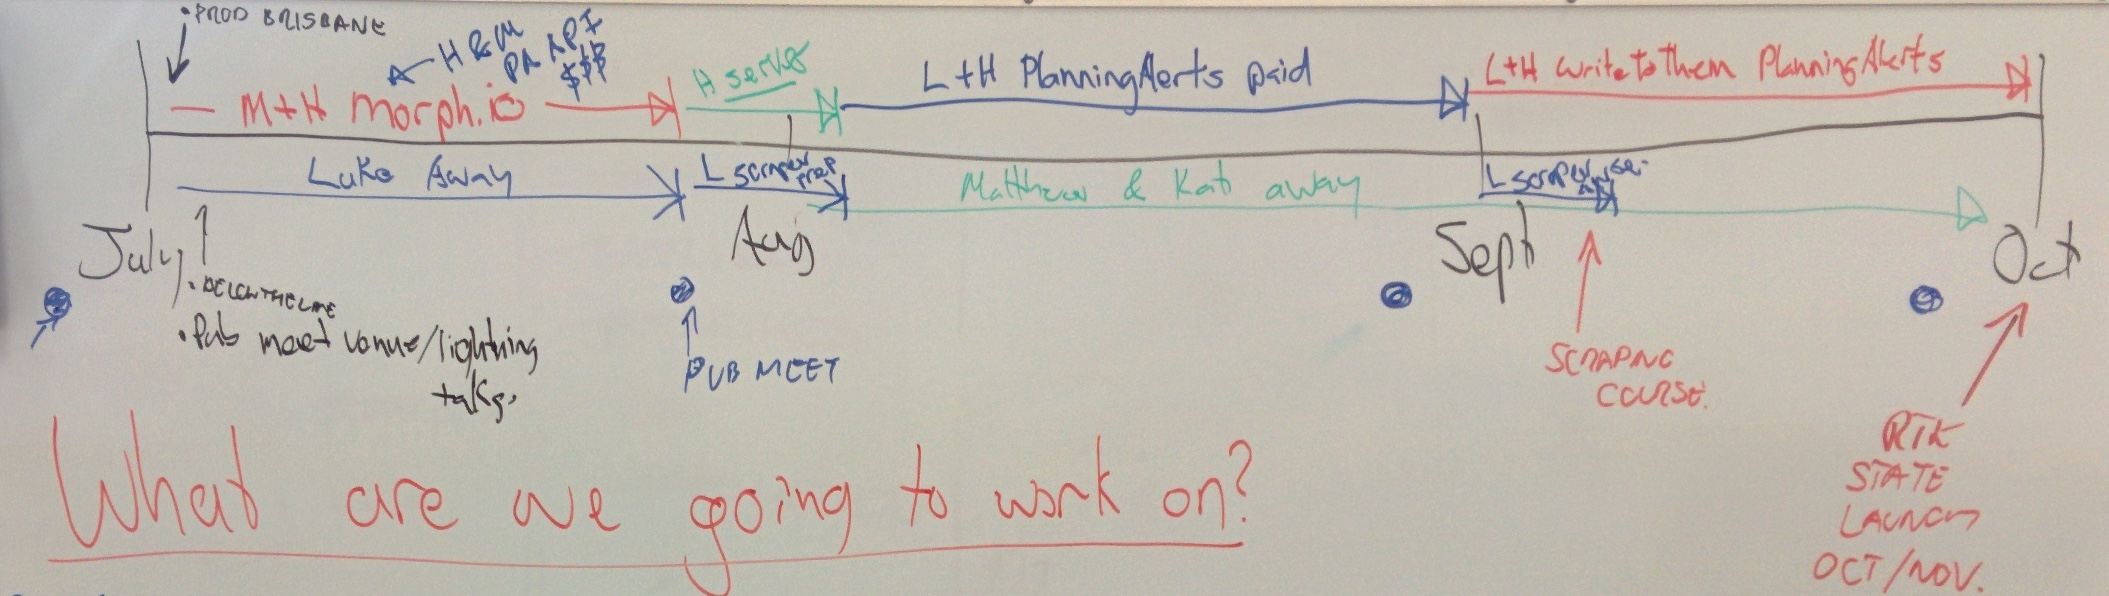 • PROD BRISBANE
H & M
PA API
$$$
M+H morph.io
H server
L+H PlanningAlerts paid
L+H writetothem PlanningAlerts
Luke Away
L scraper
prep
Matthew & Kat away
L scraper
July
Aug
Sept
Oct
• BELOWTHELINE
• Pub meet venue/lightning
talks.
PUB MEET
SCRAPING
COURSE.
RTK
STATE
LAUNCH
OCT/NOV.
What are we going to work on?